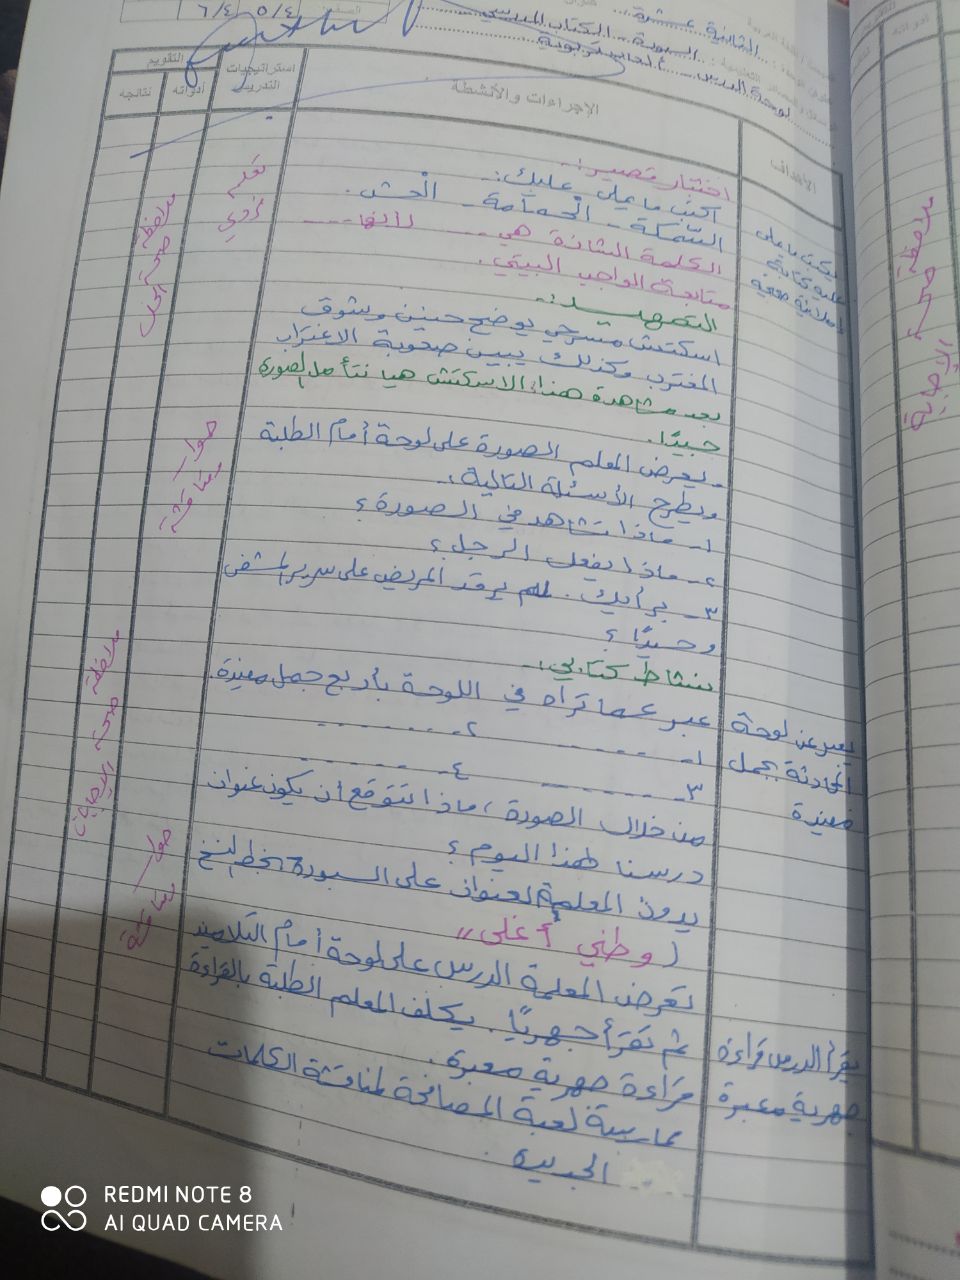 الصف ٤/٥ ٤/٦
الثانية عشرة
السبورة - الكتاب المدرسي
لوحة الدرس
الأهداف
الإجراءات والأنشطة
استراتيجيات التدريس
التقويم
أدواته
نتائجه
اختبار قصير:-
اكتب ما يملى عليك:-
السّمكة - الْحمامة - الْحش.
الكلمة الشاذة هي ...... لأنها ......
متابعة الواجب البيتي.
التمهيد:-
اسكتش مسرحي يوضح حنين وشوق
المغترب وكذلك يبين صعوبة الاغتراب
بعد مشاهدة هذا الاسكتش هيا نتأمل الصورة
جيدًا.
يعرض المعلم الصورة على لوحة أمام الطلبة
ويطرح الأسئلة التالية:-
١- ماذا تشاهد في الصورة؟
٢- ماذا يفعل الرجل؟
٣- برأيك. لم يرقد المريض على سرير المشفى
وحيدًا؟
نشاط كتابي:-
عبر عما تراه في اللوحة بأربع جمل مفيدة.
١- ...... ٢- ......
٣- ...... ٤- ......
من خلال الصورة، ماذا تتوقع ان يكون عنوان
درسنا لهذا اليوم؟
يدون المعلمة العنوان على السبورة بخط النسخ
(وطني أغلى)
تعرض المعلمة الدرس على لوحة أمام التلاميذ
ثم تقرأ جهريًا. يكلف المعلم الطلبة بالقراءة
قراءة جهرية معبرة.
ممارسة لعبة المصافحة لمناقشة الكلمات
الجديدة.
يكتب ما يملى
عليه كتابة
املائية صحيحة
يعبر عن لوحة
المحادثة بجمل
مفيدة
يقرأ الدرس قراءة
جهرية معبرة
تعلم
ملاحظة
صحة الحل
حوار
ومناقشة
ملاحظة
صحة الإجابات
حوار
ومناقشة
ملاحظة صحة
الإجابة
أدواته
REDMI NOTE 8
AI QUAD CAMERA